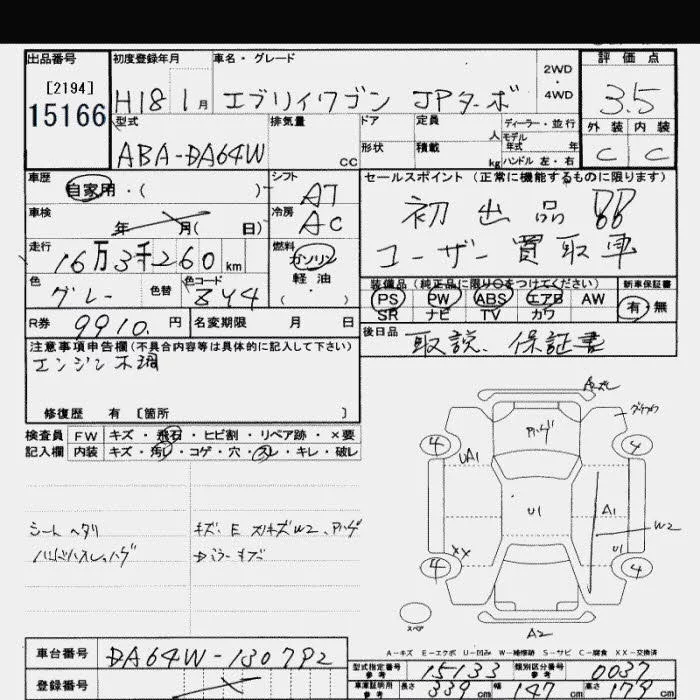 出品番号 初度登録年月 車名・グレード 評価点
[2194] 2WD・4WD
15166 H18 1月 エブリイワゴン JPターボ 3.5
型式 排気量 ドア 定員 人 ディーラー・並行 外装 内装
ABA-DA64W cc 形状 積載 kg モデル年式 年 ハンドル 左・右 C C
車歴 自家用・( ) シフト AT セールスポイント (正常に機能するものに限ります)
車検 年 月( 日) 冷房 AC 初出品
走行 16万3千260km 燃料 ガソリン ユーザー買取車
色 グレー 色替 色コード 844 軽油・( ) 装備品 (純正品に限り○をつけてください) 新車保証書
PS PW ABS エアB AW 有・無
R券 9910.円 名変期限 月 日 SR ナビ TV カワ
注意事項申告欄(不具合内容等は具体的に記入して下さい) 後日品 取説、保証書
エンジン不調
修復歴 有 [箇所 ]
検査員 FW キズ・飛石・ヒビ割・リペア跡・×要
記入欄 内装 キズ・汚レ・コゲ・穴・スレ・キレ・破レ
4 4
UA1
U1 A1
W2
XX U1
4 4
シート ヘタリ キズ、E
スペア
A2
A-キズ E-エクボ U-凹み W-補修跡 S-サビ C-腐食 XX-交換済
車台番号 DA64W-130792
登録番号
型式指定番号 参考 15133 類別区分番号 参考 0037
車庫証明用 参考 長さ 339cm 幅 147cm 高さ cm